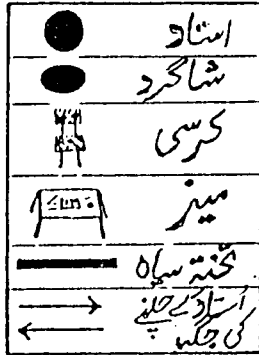 استاد
شاگرد
کرسی
میز
تختہ سیاہ
اُستاد کے چلنے
کی جگہ